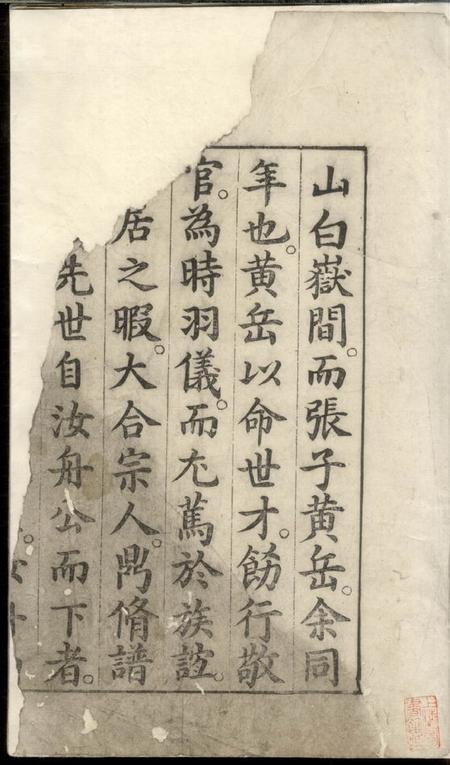 山白嶽間。而張子黄岳。余同
年也。黄岳以命世才。飭行敬
官。為時羽儀。而尤篤於族誼。
居之暇。大合宗人。鼎脩譜
先世自汝舟公而下者。